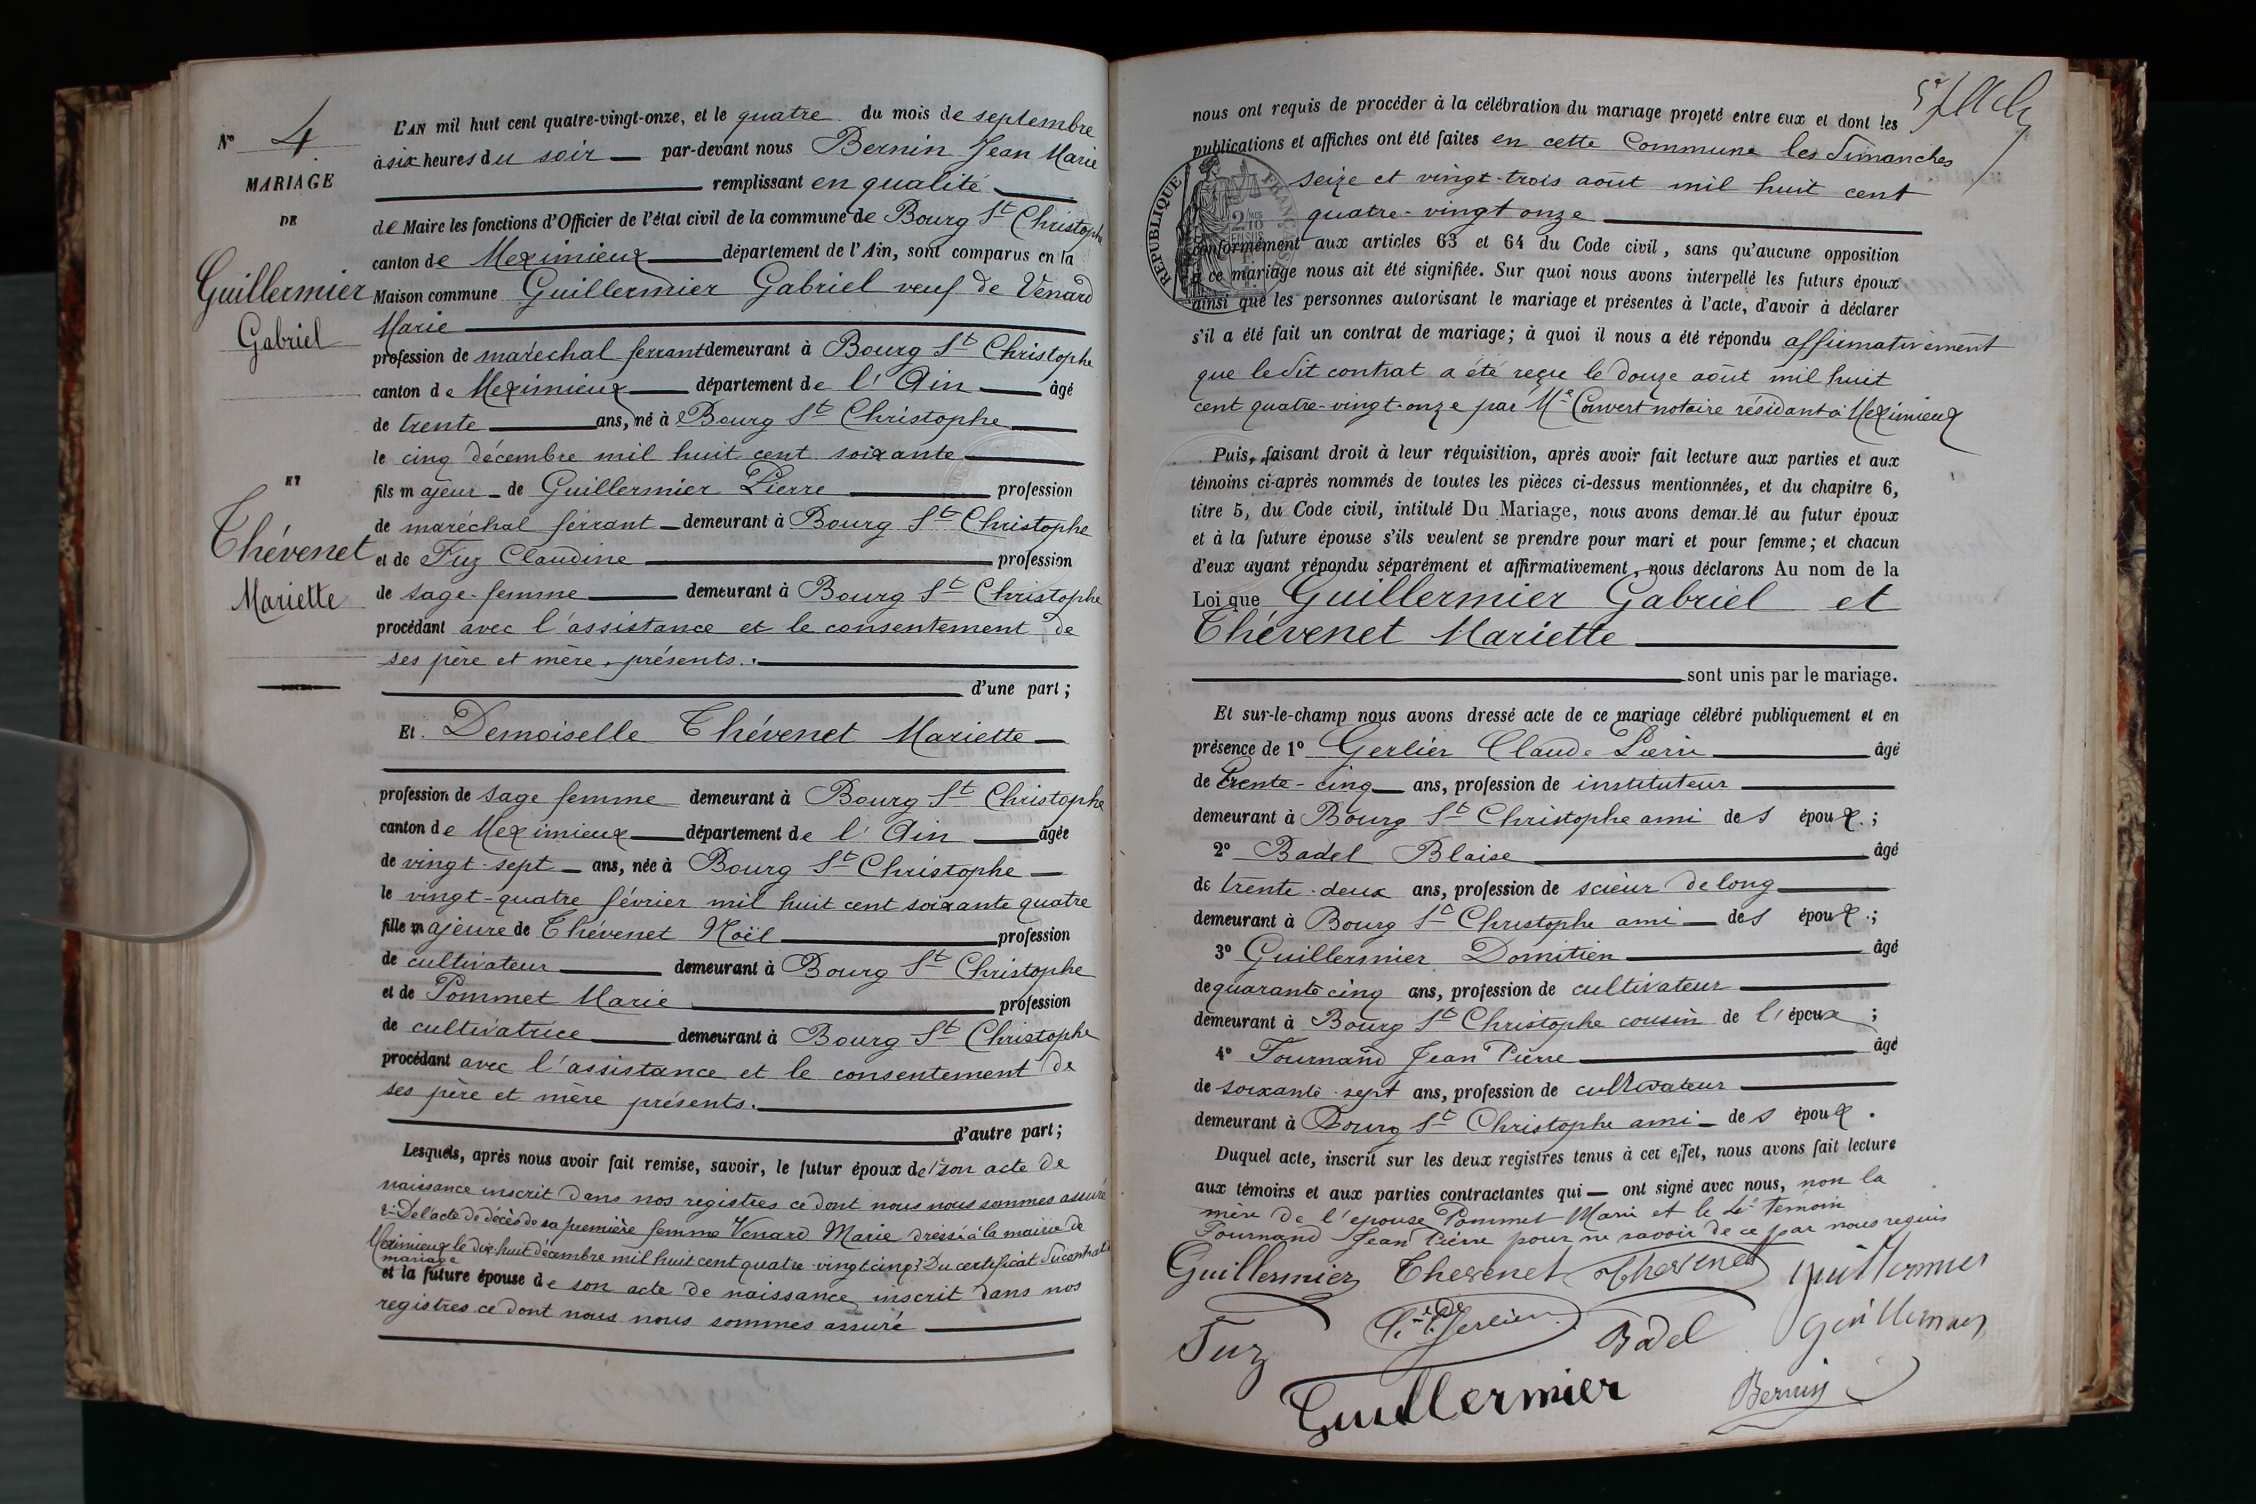 N° 4
MARIAGE
DE
Guillermier
Gabriel
ET
Thévenet
Mariette
L'AN mil huit cent quatre-vingt-onze, et le quatre du mois de septembre
à six heures du soir — par-devant nous Bernin Jean Marie
remplissant en qualité
de Maire les fonctions d'Officier de l'état civil de la commune de Bourg St Christophe
canton de Meximieux département de l'Ain, sont comparus en la
Maison commune Guillermier Gabriel veuf de Venard
Marie
profession de maréchal ferrant demeurant à Bourg St Christophe
canton de Meximieux département de l'Ain âgé
de trente ans, né à Bourg St Christophe
le cinq décembre mil huit cent soixante
fils majeur de Guillermier Pierre profession
de maréchal ferrant demeurant à Bourg St Christophe
et de Fuz Claudine profession
de sage-femme demeurant à Bourg St Christophe
procédant avec l'assistance et le consentement de
ses père et mère, présents.
d'une part;
Et Demoiselle Thévenet Mariette
profession de sage femme demeurant à Bourg St Christophe
canton de Meximieux département de l'Ain âgée
de vingt-sept ans, née à Bourg St Christophe
le vingt-quatre février mil huit cent soixante quatre
fille majeure de Thévenet Noël profession
de cultivateur demeurant à Bourg St Christophe
et de Pommet Marie profession
de cultivatrice demeurant à Bourg St Christophe
procédant avec l'assistance et le consentement de
ses père et mère présents.
d'autre part;
Lesquels, après nous avoir fait remise, savoir, le futur époux de 1° son acte de
naissance inscrit dans nos registres ce dont nous nous sommes assuré
2° De l'acte de décès de sa première femme Venard Marie dressé à la mairie de
Meximieux le dix-huit décembre mil huit cent quatre-vingt cinq 3° Du certificat du contrat de
mariage
et la future épouse de son acte de naissance inscrit dans nos
registres ce dont nous nous sommes assuré
nous ont requis de procéder à la célébration du mariage projeté entre eux et dont les
publications et affiches ont été faites en cette Commune les dimanches
seize et vingt-trois août mil huit cent
quatre-vingt onze
RÉPUBLIQUE FRANÇAISE
conformément aux articles 63 et 64 du Code civil, sans qu'aucune opposition
à ce mariage nous ait été signifiée. Sur quoi nous avons interpellé les futurs époux
ainsi que les personnes autorisant le mariage et présentes à l'acte, d'avoir à déclarer
s'il a été fait un contrat de mariage; à quoi il nous a été répondu affirmativement
que le dit contrat a été reçu le douze août mil huit
cent quatre-vingt-onze par Me Convert notaire résidant à Meximieux
Puis, faisant droit à leur réquisition, après avoir fait lecture aux parties et aux
témoins ci-après nommés de toutes les pièces ci-dessus mentionnées, et du chapitre 6,
titre 5, du Code civil, intitulé Du Mariage, nous avons demandé au futur époux
et à la future épouse s'ils veulent se prendre pour mari et pour femme; et chacun
d'eux ayant répondu séparément et affirmativement, nous déclarons Au nom de la
Loi que Guillermier Gabriel et
Thévenet Mariette
sont unis par le mariage.
Et sur-le-champ nous avons dressé acte de ce mariage célébré publiquement et en
présence de 1° Gerlier Claude Pierre âgé
de trente-cinq ans, profession de instituteur
demeurant à Bourg St Christophe ami des époux;
2° Badel Blaise âgé
de trente-deux ans, profession de scieur de long
demeurant à Bourg St Christophe ami des époux;
3° Guillermier Domitien âgé
de quarante cinq ans, profession de cultivateur
demeurant à Bourg St Christophe cousin de l'époux;
4° Fournand Jean Pierre âgé
de soixante-sept ans, profession de cultivateur
demeurant à Bourg St Christophe ami des époux.
Duquel acte, inscrit sur les deux registres tenus à cet effet, nous avons fait lecture
aux témoins et aux parties contractantes qui — ont signé avec nous, non la
mère de l'épouse Pommet Marie et le 4e témoin
Fournand Jean Pierre pour ne savoir de ce par nous requis
Guillermier Thevenet Thevenet Guillermier
Fuz Gerlier Badel Guillermier
Guillermier Bernin